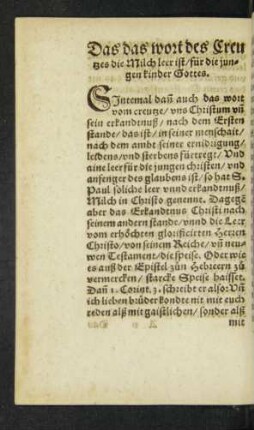 Das das wort des Creu
tzes die Milch leer ist/ für die jun-
gen kinder Gottes.
SIntemal dañ auch das wort
vom creutze/ vns Christum vñ
sein erkandtnuß/ nach dem Ersten
stande/ das ist/ in seiner menschait/
nach dem ambt seiner ernidigung/
leidens/ vnd sterbens fürtregt/ Vnd
aine leer für die jungen christen/ vnd
anfenger des glaubens ist/ so hat S.
Paul soliche leer vnnd erkandtnuß/
Milch in Christo genennt. Dagegẽ
aber das Erkandtnus Christi nach
seinem andern stande/ vnnd die Leer
vom erhöchten glorificirten Herren
Christo/ von seinem Reiche/ vñ neu-
wen Testament/ die speise. Oder wie
es auß der Epistel zůn Hebreern zů
vermercken/ starcke Speise haisset.
Dañ 1. Corint. 3. schreibt er also: Vñ
ich lieben brüder kondte nit mit euch
reden alß mit gaistlichen/ sonder alß
mit